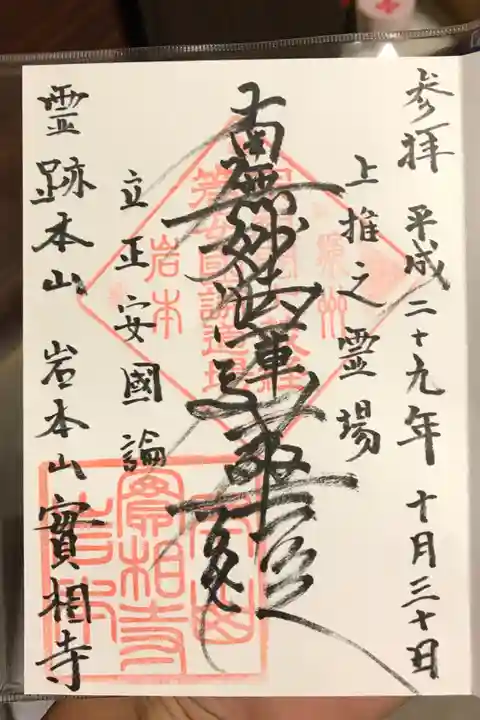 参拝 平成二十九年 十月三十日
上推之霊場
南無妙法蓮華経
立正安國論
霊跡本山 岩本山 實相寺
岩本
實相寺